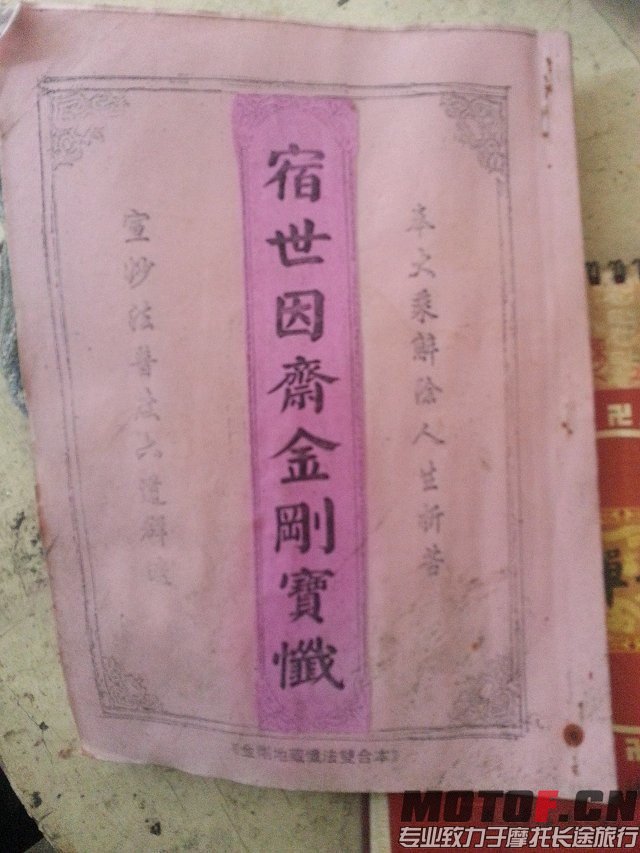 大乘解除人生祈苦
宿世因齋金剛寶懺
宣妙法普六道解
《金剛地藏懺法雙合本》
卍
卍
MOTOF.CN
专业致力于摩托长途旅行